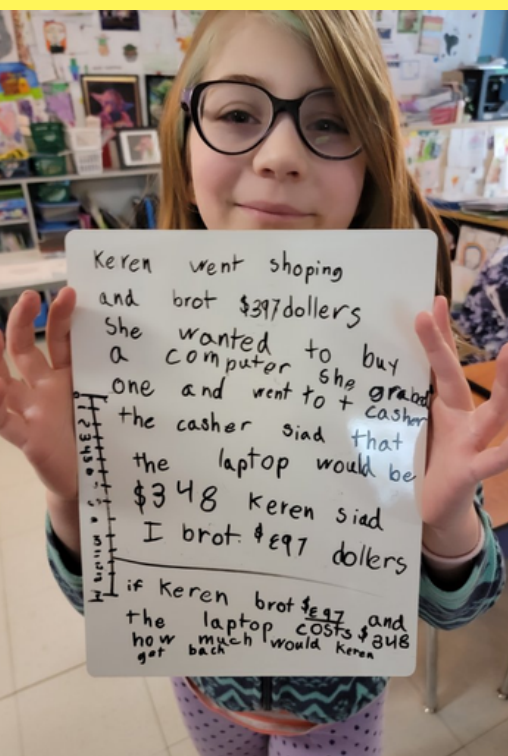 Keren went shoping
and brot $397 dollers
She wanted to buy
a computer she grabed
one and went to t casher
the casher siad that
the laptop would be
$348 Keren siad
I brot $£97 dollers
if Keren brot $£97 and
the laptop costs $348
how much would Keren
got bach